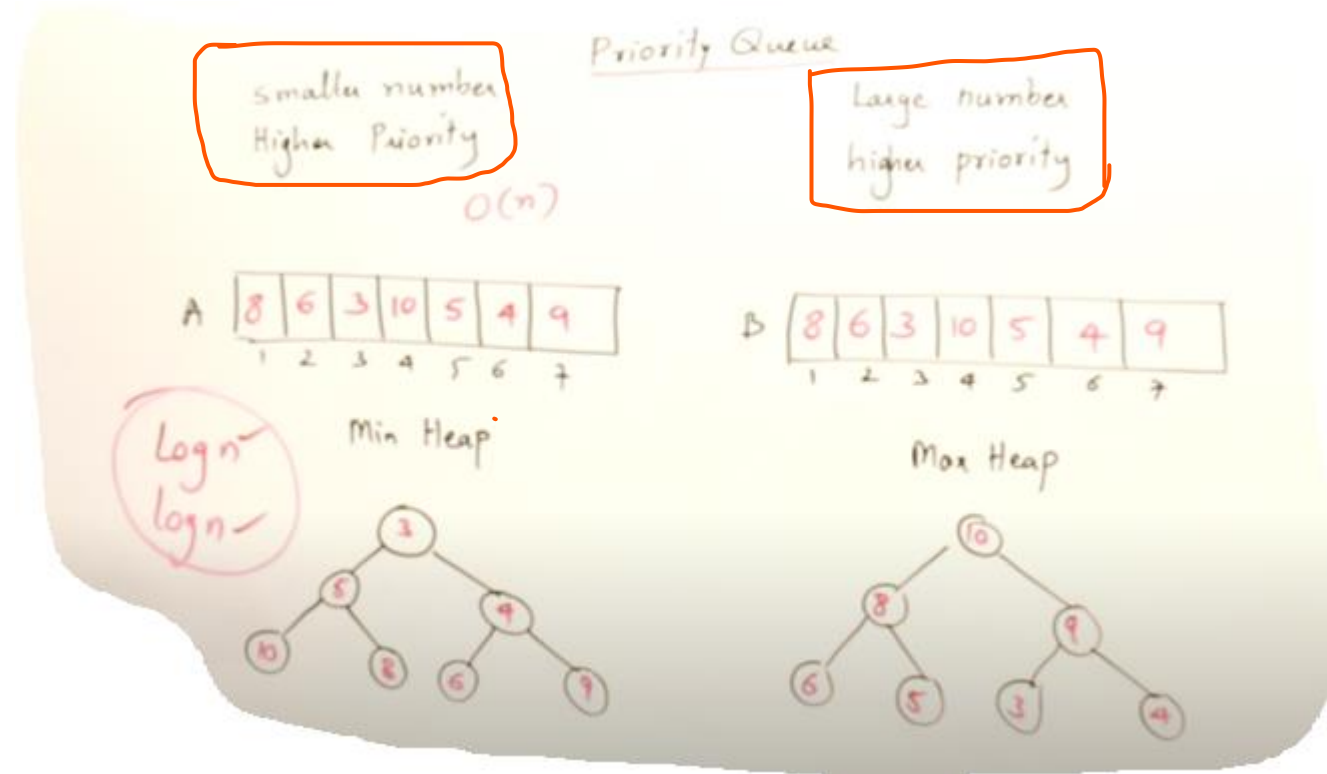 Priority Queue
smaller number
Higher Priority
Large number
higher priority
O(n)
A 8 6 3 10 5 4 9
1 2 3 4 5 6 7
B 8 6 3 10 5 4 9
1 2 3 4 5 6 7
Log n
log n
Min Heap
3
5 4
10 8 6 9
Max Heap
10
8 9
6 5 3 4